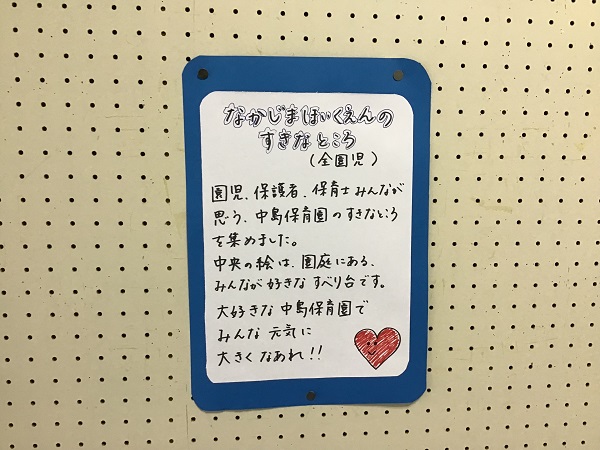 なかじまほいくえんの
すきなところ
(全園児)
園児、保護者、保育士みんなが
思う、中島保育園のすきなところ
を集めました。
中央の絵は、園庭にある、
みんなが好きなすべり台です。
大好きな中島保育園で
みんな元気に
大きくなあれ!!